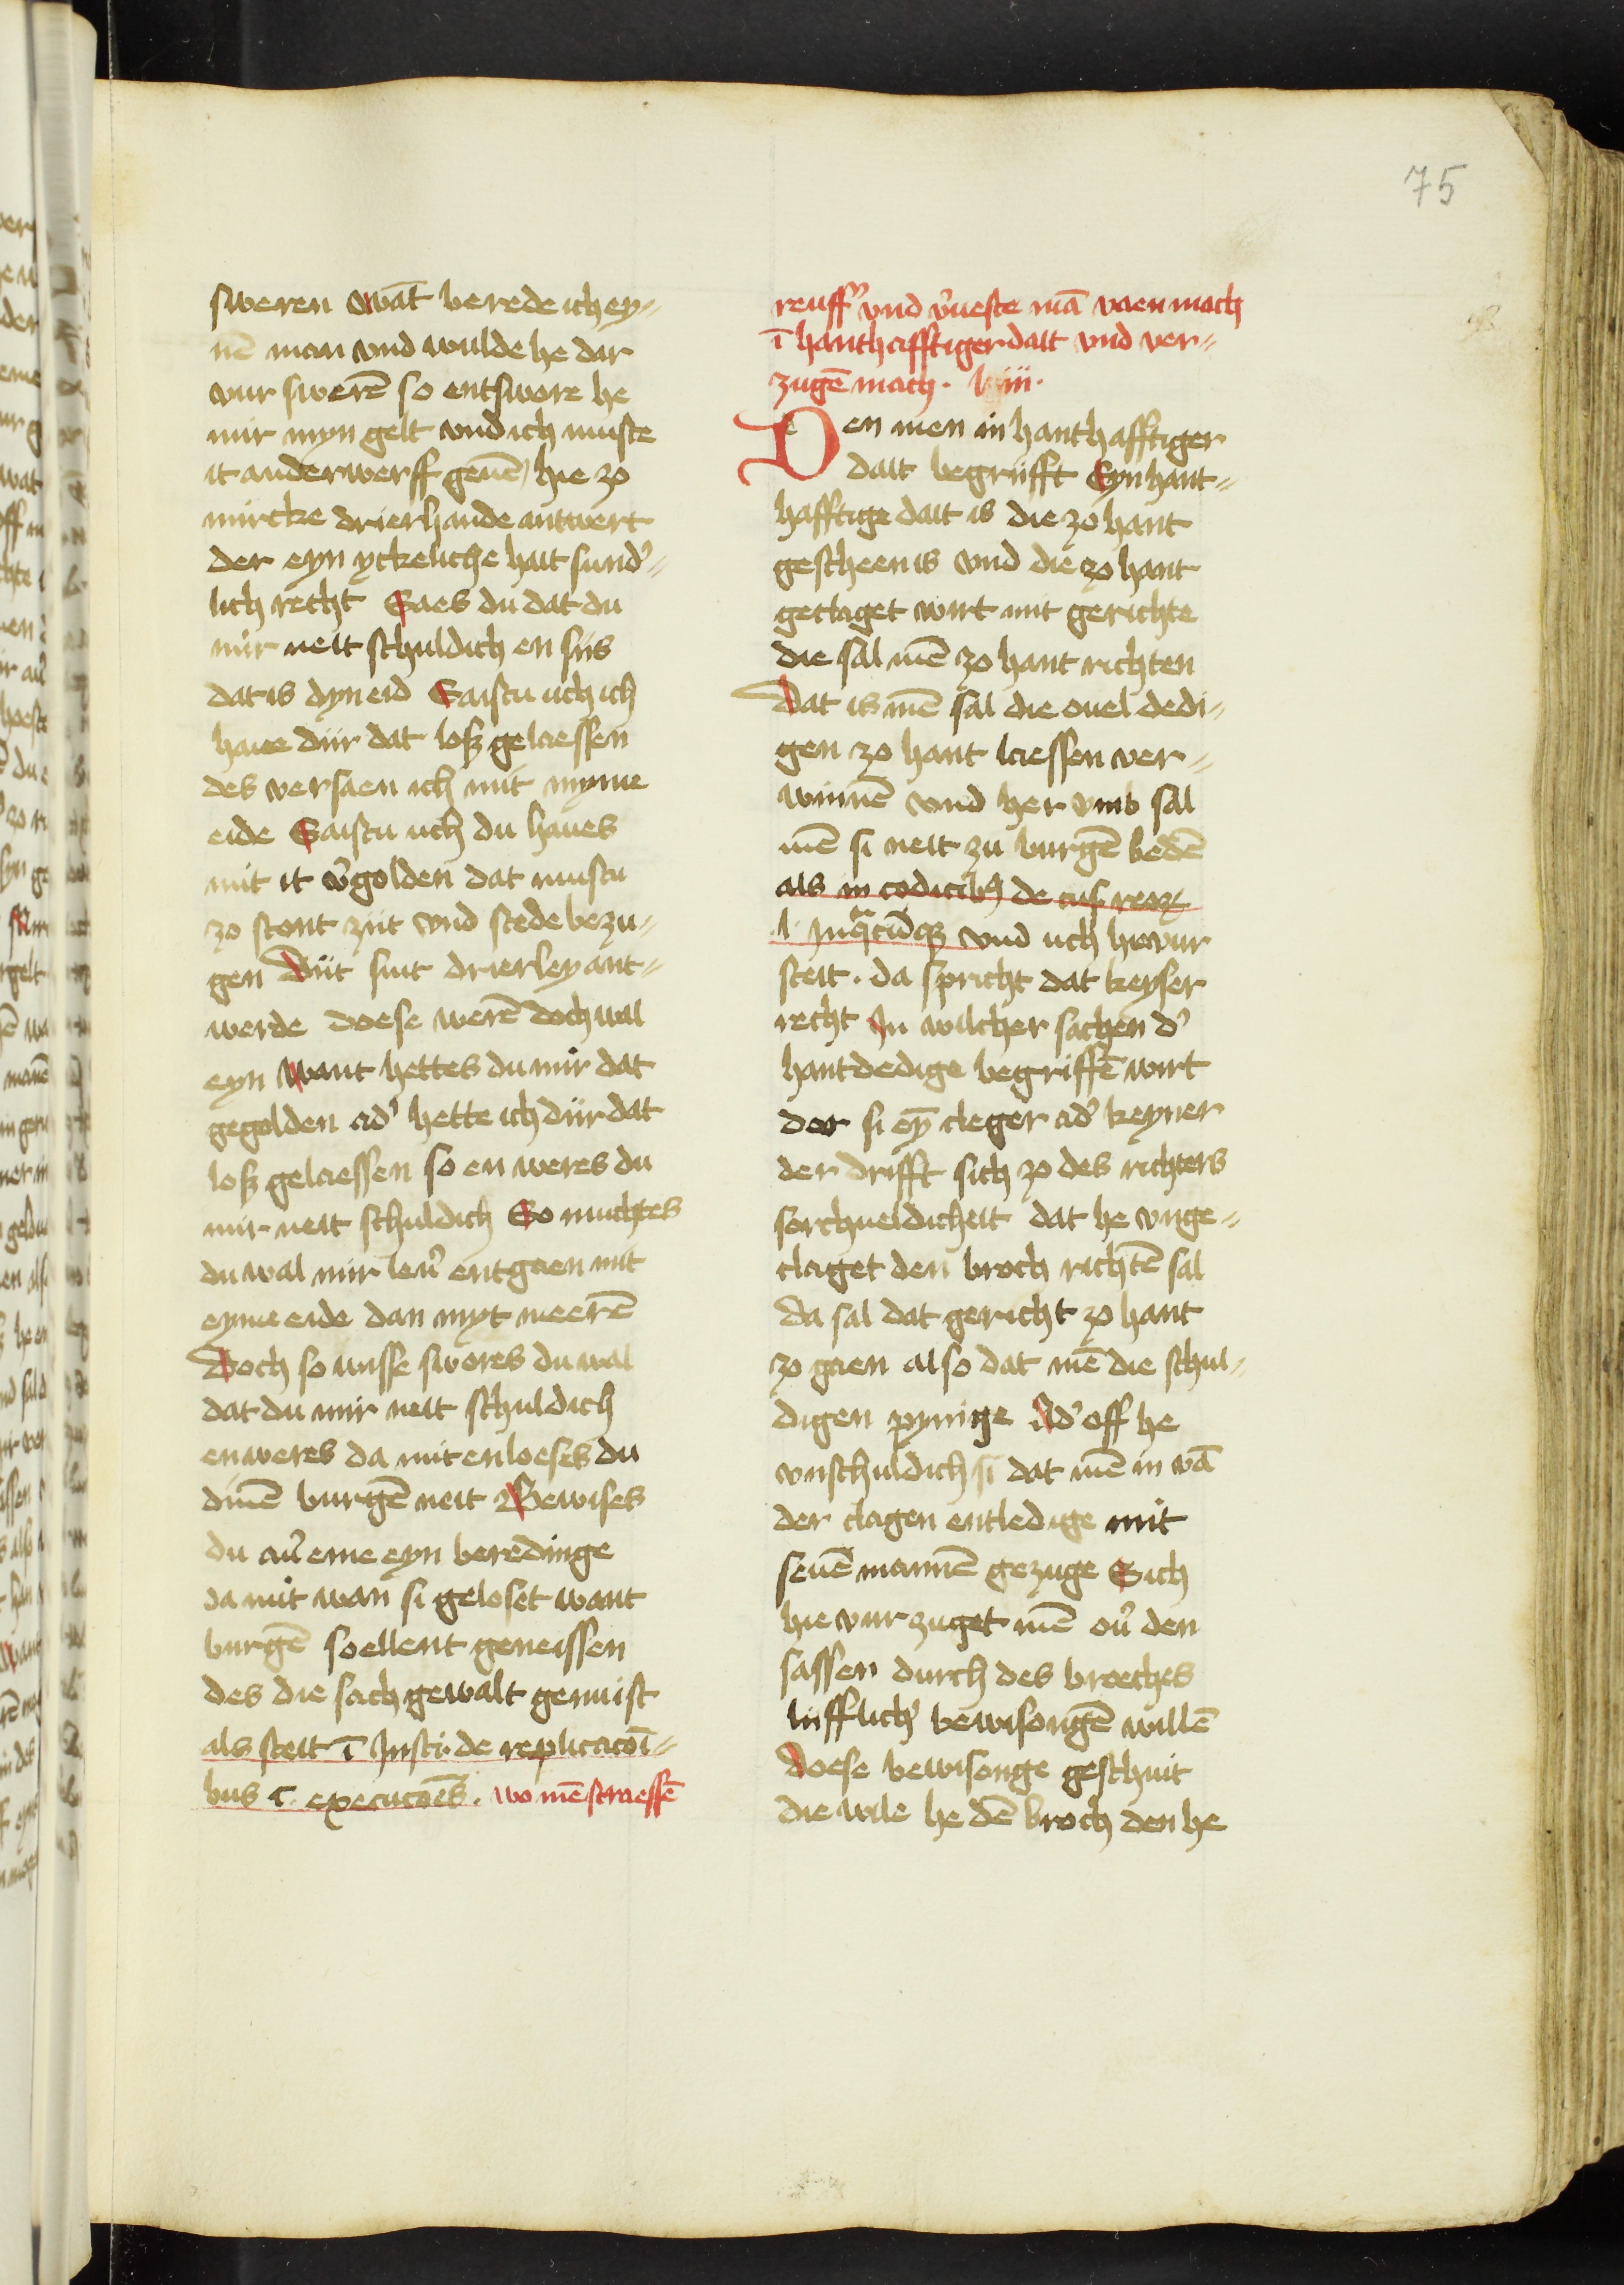 75
sweren Wāt berede ich ey-
nē man vnd wulde he dar
vur swerē so entswore he
mir myn gelt vnd ich muste
it anderwerff geuē hie zo
mircke drierhande antwert
der eyn yckeliche hait sund'-
lich recht Saes du dat du
mir neit schuldich en siis
dat is dyn eid Saistu uch ich
haue diir dat loß gelaessen
des versaen ich mit myme
eide Saistu uch du haues
mit it v'golden dat mustu
zo stont ziit vnd stede bezu-
gen Diit sint drierley ant-
werde doese werē doch wal
eyn Want hettes du mir dat
gegolden ad' hette ich diir dat
loß gelaessen so en weres du
mir neit schuldich So muchtes
du wal mir leu' entgaen mit
eyme eide dan myt meerē
Doch so wisse swores du wal
dat du mir neit schuldich
enweres da mit enloeses du
dinē burgē neit Bewises
du au' eme eyn beredinge
da mit wan si geloset want
burgē soellent geneissen
des die sach gewalt genuist
als steit ī Insti. de replicacōī-
bus τ execucoēs. wo mē straessē
reuff' vnd v'ueste mā vaen mach
ī hanthafftiger dait vnd ver-
zugē mach.
Den men in hanthafftiger
dait begriifft Eyn hant-
hafftige dait is die zo hant
gescheen is vnd die zo hant
geclaget wirt mit gerichte
die sal mē zo hant richten
Dat is mē sal die ouel dedi-
gen zo hant laessen ver-
winnē vnd her vmb sal
mē si neit zu burgē bedē
als in codicib9 de
l. vnd uch hievur
steit. da spricht dat keyser
recht In wilcher sachen d'
hantdedige begriffē wirt
dar si eȳ cleger ad' keyner
der drifft sich zo des richters
sorchueldicheit dat he vnge-
claget den broch richtē sal
da sal dat gericht zo hant
zo gaen also dat mē die schul-
digen pynige Ad' off he
vnschuldich si dat mē in vā
der clagen entledige mit
seuē mannē gezuge Sich
hie vur zuget mē ou' den
sassen durch des broeches
lifflich' bewisongē willē
Doese bewisonge geschuit
die wile he dē broch den he